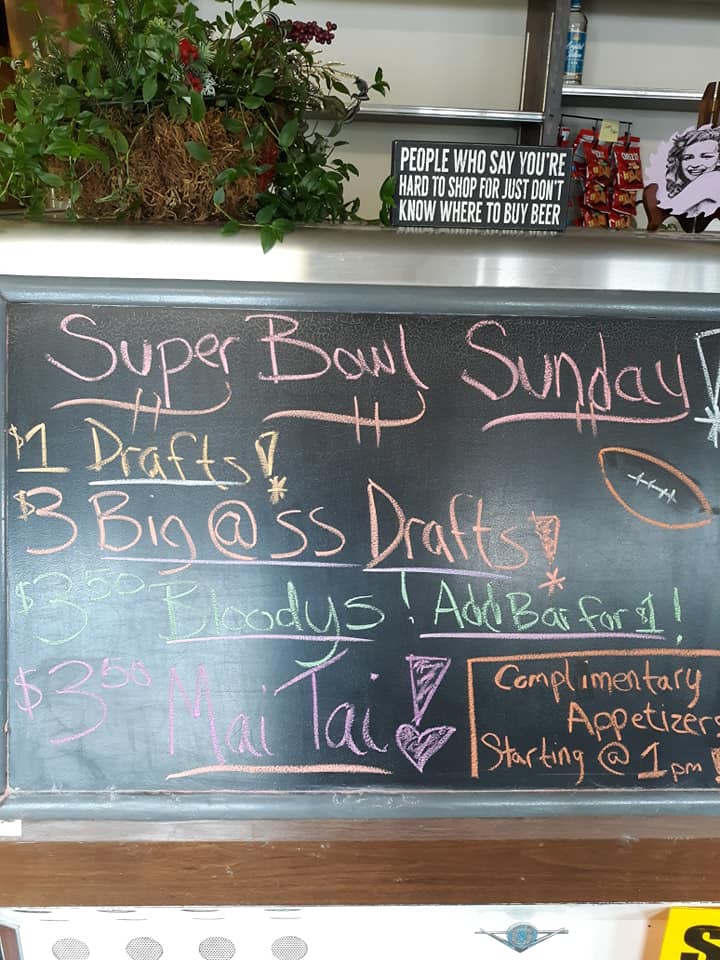 PEOPLE WHO SAY YOU'RE
HARD TO SHOP FOR JUST DON'T
KNOW WHERE TO BUY BEER
Super Bowl Sunday!
$1 Drafts!
$3 Big @ss Drafts!
$3.50 Bloodys! Add Bar for $1!
$3.50 Mai Tai!
Complimentary
Appetizers
Starting @ 1pm